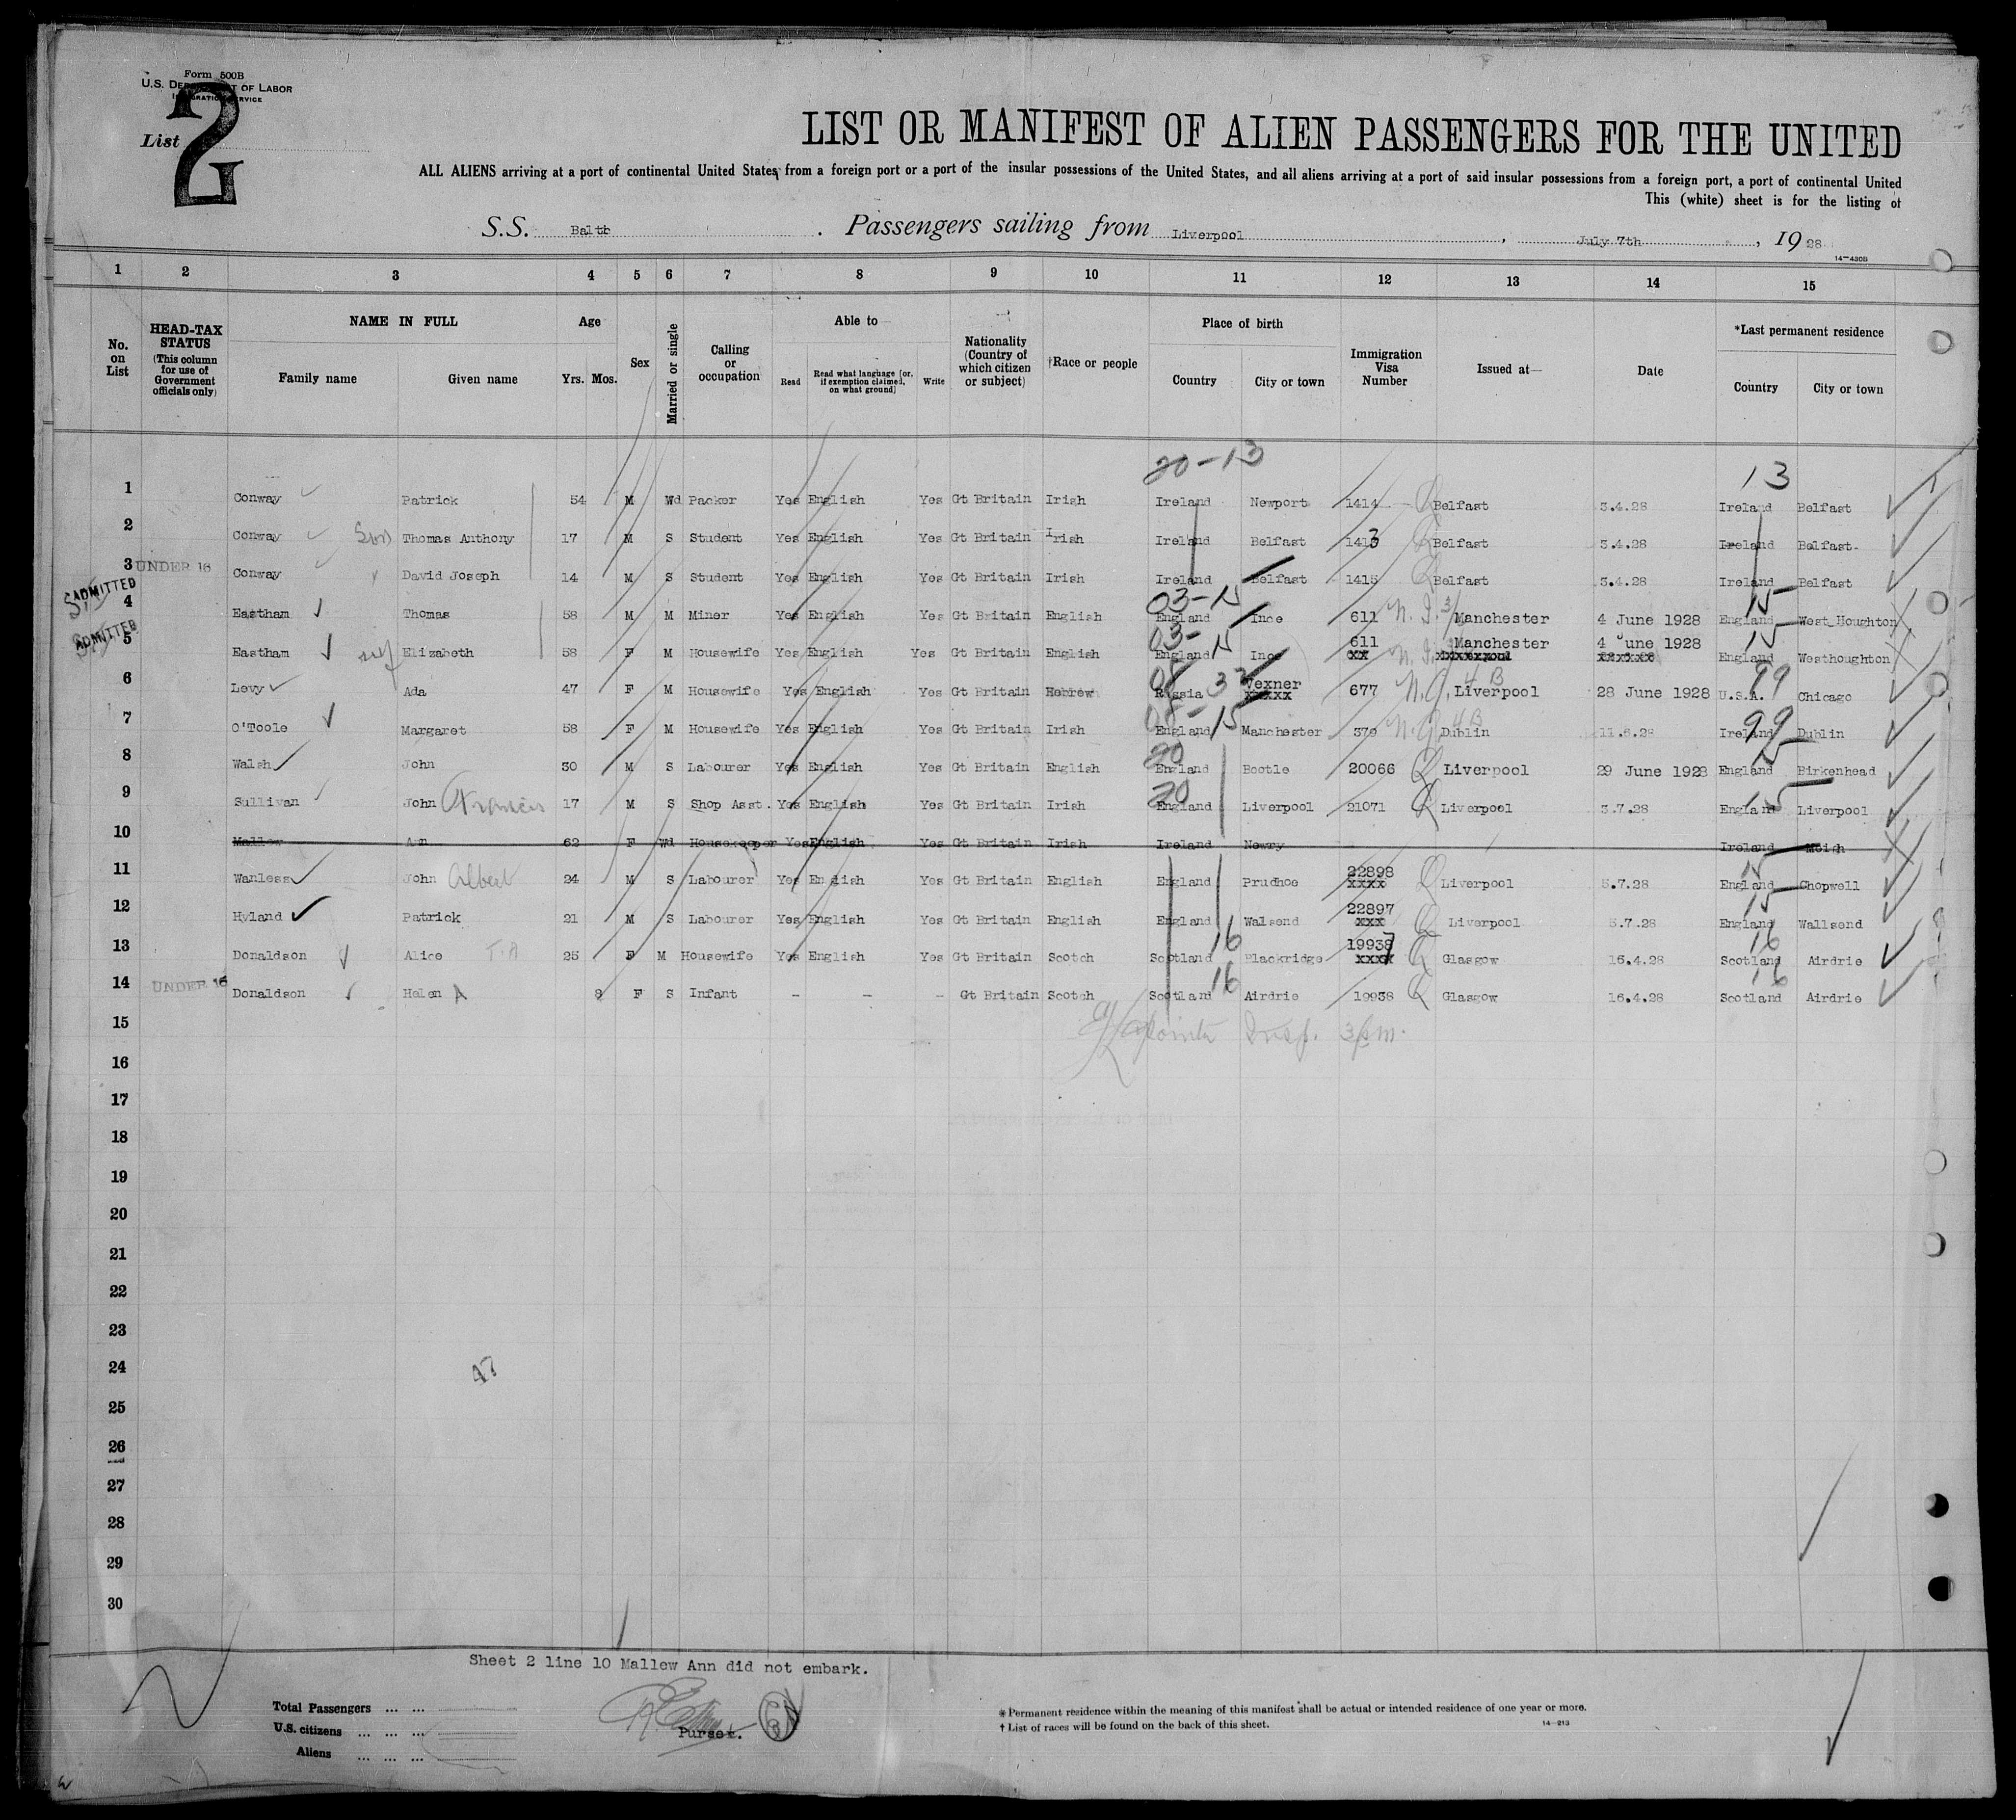 Form 500B
U.S. DEPARTMENT OF LABOR
IMMIGRATION SERVICE
List 2
LIST OR MANIFEST OF ALIEN PASSENGERS FOR THE UNITED
ALL ALIENS arriving at a port of continental United States from a foreign port or a port of the insular possessions of the United States, and all aliens arriving at a port of said insular possessions from a foreign port, a port of continental United
This (white) sheet is for the listing of
S.S. Baltic . Passengers sailing from Liverpool , July 7th , 19 28
14—430B
1 2 3 4 5 6 7 8 9 10 11 12 13 14 15
No. on List
HEAD-TAX STATUS (This column for use of Government officials only)
NAME IN FULL
Family name Given name
Age
Yrs. Mos.
Sex
Married or single
Calling or occupation
Able to
Read Read what language [or, if exemption claimed, on what ground] Write
Nationality (Country of which citizen or subject)
†Race or people
Place of birth
Country City or town
Immigration Visa Number
Issued at—
Date
*Last permanent residence
Country City or town
20-13 13
1 Conway Patrick 54 M Wd Packer Yes English Yes Gt Britain Irish Ireland Newport 1414 Belfast 3.4.28 Ireland Belfast
2 Conway Son Thomas Anthony 17 M S Student Yes English Yes Gt Britain Irish Ireland Belfast 1413 Belfast 3.4.28 Ireland Belfast
3 UNDER 16 Conway David Joseph 14 M S Student Yes English Yes Gt Britain Irish Ireland Belfast 1415 Belfast 3.4.28 Ireland Belfast
ADMITTED 03-15 15
4 Eastham Thomas 58 M M Miner Yes English Yes Gt Britain English England Ince 611 N.I. 3/ Manchester 4 June 1928 England West Houghton
ADMITTED 03-15 15
5 Eastham wf Elizabeth 58 F M Housewife Yes English Yes Gt Britain English England Ince 611 xx Manchester 4 June 1928 England Westhoughton
6 Levy Ada 47 F M Housewife Yes English Yes Gt Britain Hebrew Russia Vexner xxxxx 677 4 B Liverpool 28 June 1928 U.S.A. 99 Chicago
7 O'Toole Margaret 58 F M Housewife Yes English Yes Gt Britain Irish England 15 Manchester 379 4 B Dublin 11.6.28 Ireland 99 Dublin
8 Walsh John 30 M S Labourer Yes English Yes Gt Britain English 20 England Bootle 20066 Liverpool 29 June 1928 England 15 Birkenhead
9 Sullivan John Francis 17 M S Shop Asst. Yes English Yes Gt Britain Irish 20 England Liverpool 21071 Liverpool 3.7.28 England 15 Liverpool
10 Mallew Ann 62 F Wd Housekeeper Yes English Yes Gt Britain Irish Ireland Newry Ireland Meigh
11 Wanless John Albert 24 M S Labourer Yes English Yes Gt Britain English England Prudhoe 22898 xxxx Liverpool 5.7.28 England 15 Chopwell
12 Hyland Patrick 21 M S Labourer Yes English Yes Gt Britain English England Walsend 22897 xxx Liverpool 5.7.28 England 15 Wallsend
13 Donaldson Alice 25 F M Housewife Yes English Yes Gt Britain Scotch Scotland 16 Blackridge 19937 xxxx Glasgow 16.4.28 Scotland 16 Airdrie
14 UNDER 16 Donaldson Helen A 8 F S Infant - - - Gt Britain Scotch Scotland 16 Airdrie 19938 Glasgow 16.4.28 Scotland 16 Airdrie
15
Insp. 3 p.m.
16
17
18
19
20
21
22
23
24
25
26
27
28
29
30
Sheet 2 line 10 Mallew Ann did not embark.
Purser.
Total Passengers ... ...
U.S. citizens ... ... ...
Aliens ... ... ...
* Permanent residence within the meaning of this manifest shall be actual or intended residence of one year or more.
† List of races will be found on the back of this sheet.
14—213